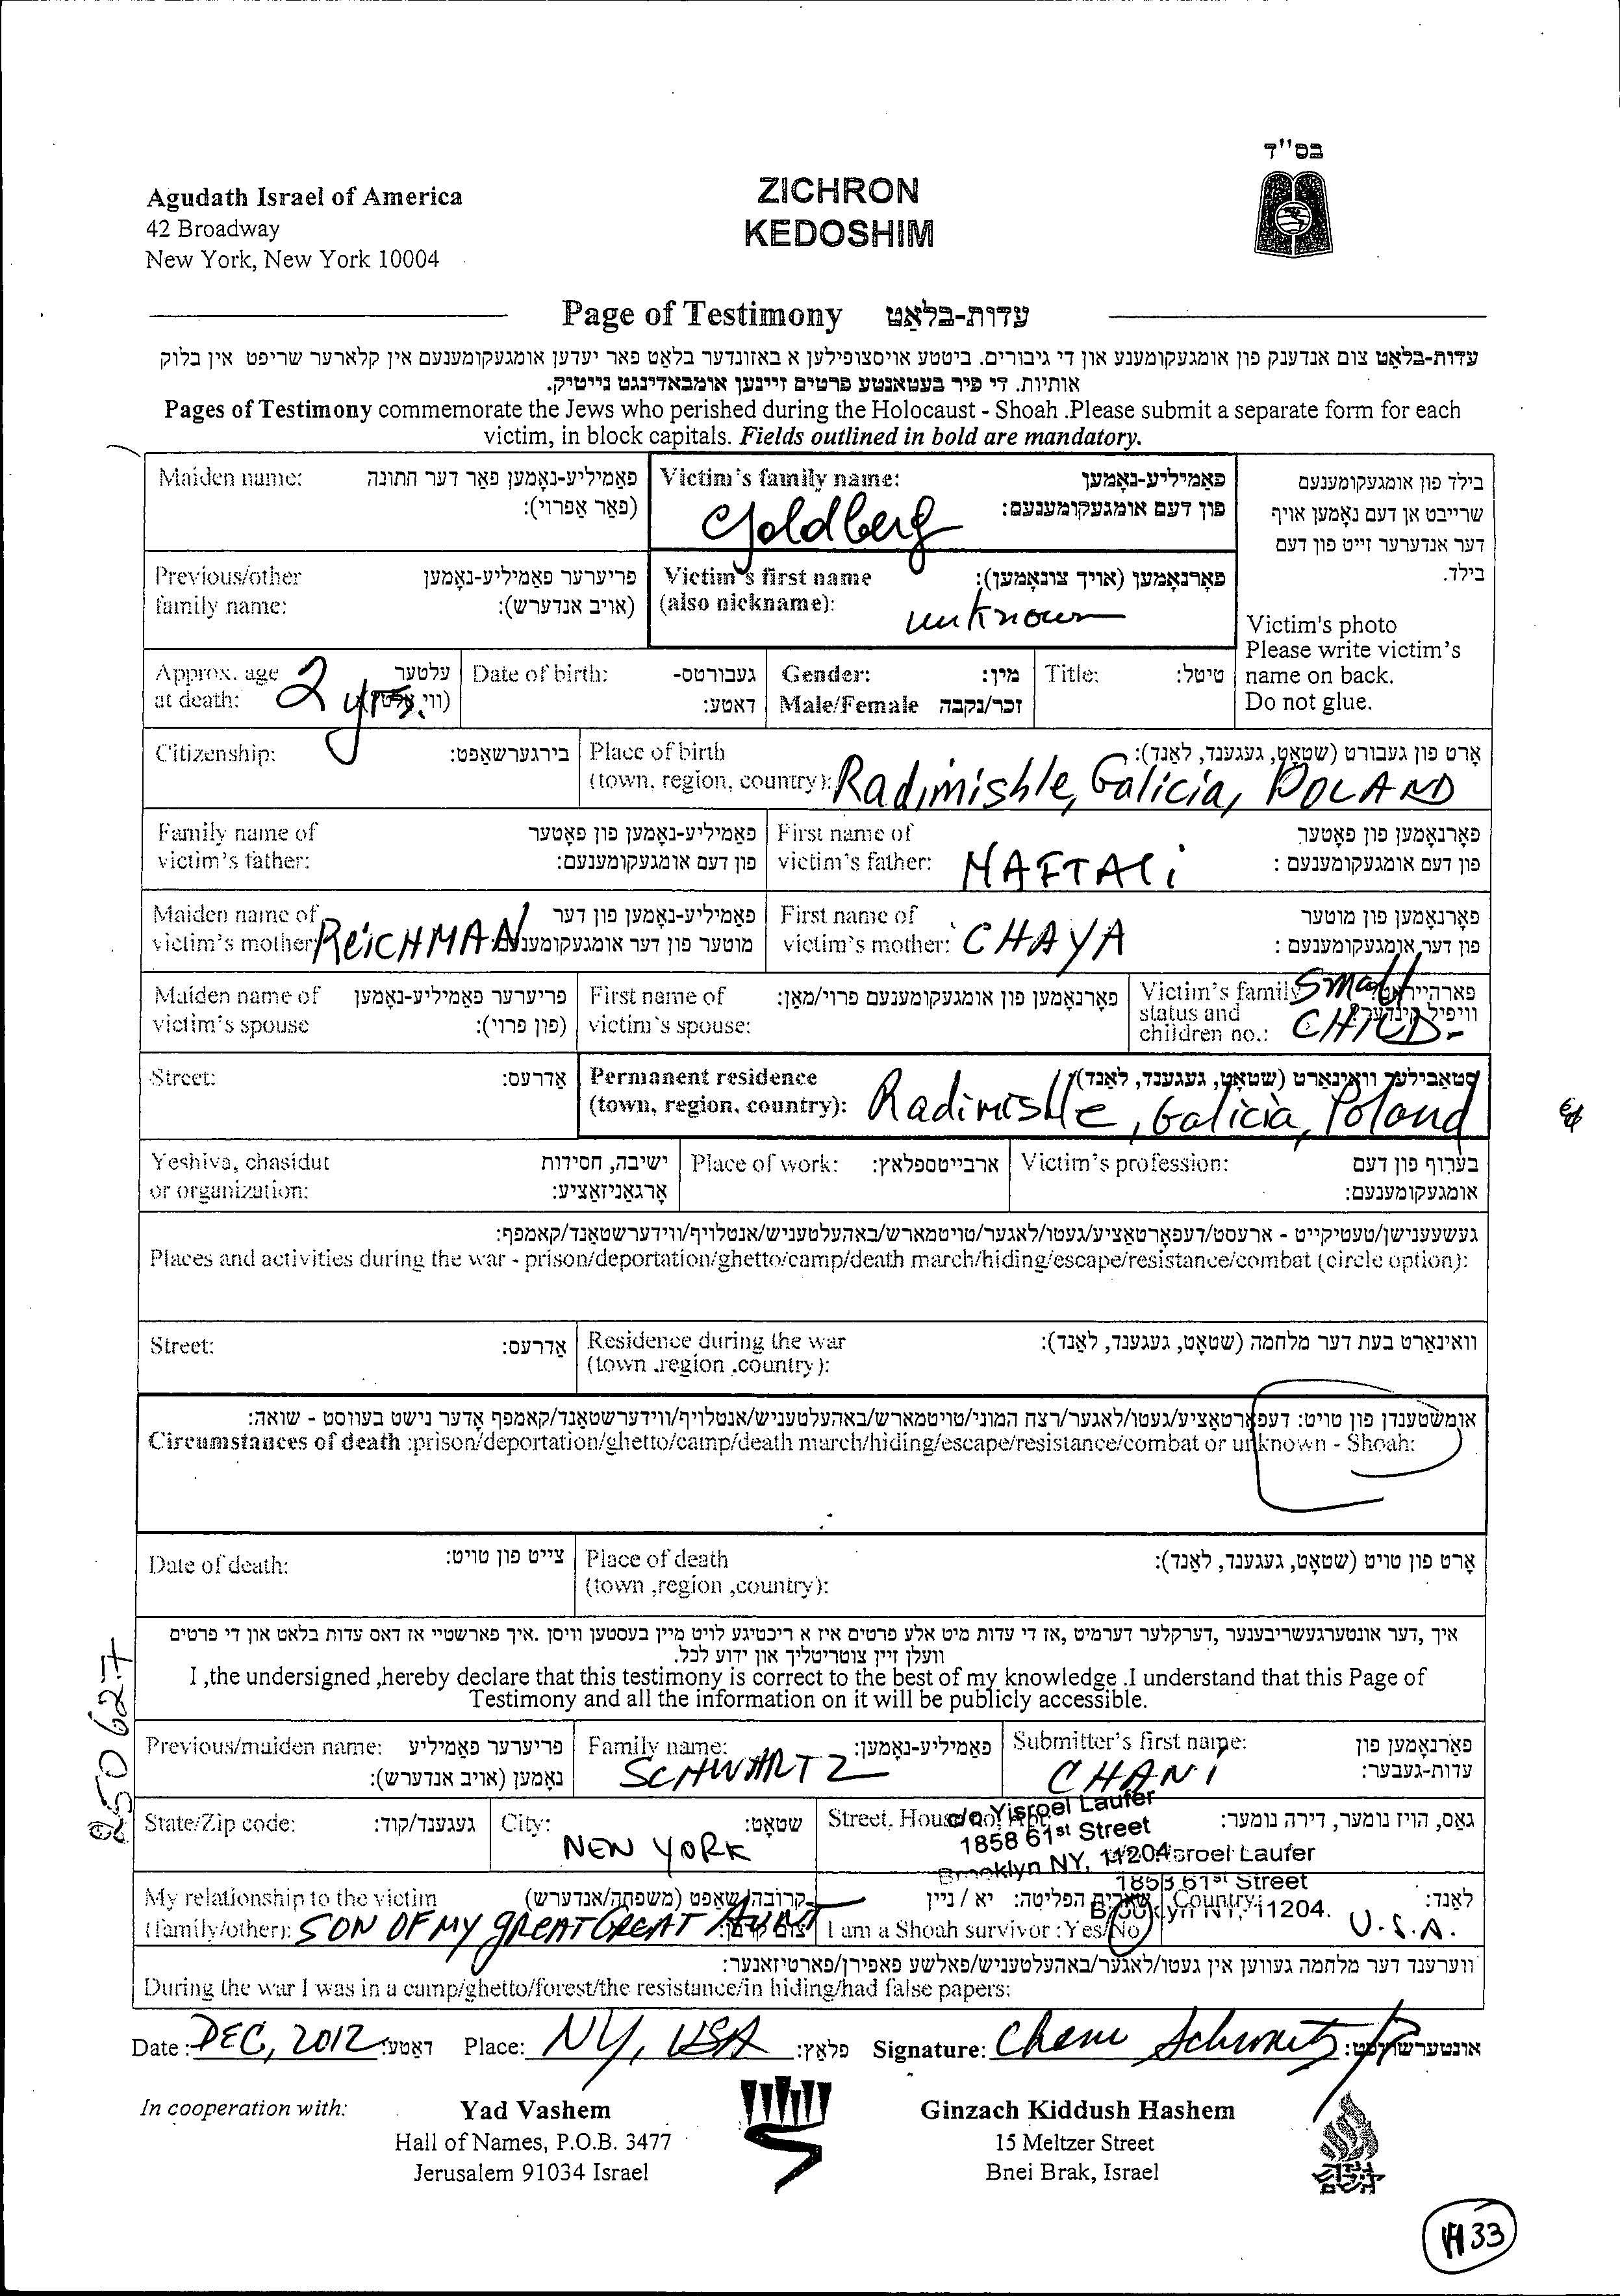 בס"ד
Agudath Israel of America
42 Broadway
New York, New York 10004
ZICHRON
KEDOSHIM
Page of Testimony עדות-בלאַט
עדות-בלאַט צום אנדענק פון אומגעקומענע און די גיבורים. ביטטע אויסצופילען א באזונדער בלאַט פאר יעדען אומגעקומענעם אין קלארער שריפט אין בלוק
אותיות. די פיר בעטאָנטע פרטים זיינען אומבאדינגט נייטיק.
Pages of Testimony commemorate the Jews who perished during the Holocaust - Shoah .Please submit a separate form for each
victim, in block capitals. Fields outlined in bold are mandatory.
Maiden name: פאַמיליע-נאָמען פאַר דער חתונה
(פאַר אַפרוי):
Victim's family name: פאַמיליע-נאָמען
פון דעם אומגעקומענעם:
Goldberg
בילד פון אומגעקומענעם
שרייבט אן דעם נאָמען אויף
דער אנדערער זייט פון דעם
בילד.
Victim's photo
Please write victim's
name on back.
Do not glue.
Previous/other פריערער פאַמיליע-נאָמען
family name: (אויב אנדערש):
Victim's first name פאָרנאָמען (אויך צונאָמען):
(also nickname):
unknown
Approx. age עלטער
at death:
2 yrs.
Date of birth: געבורטס-
דאטע:
Gender: מין:
Male/Female זכר/נקבה
Title: טיטל:
Citizenship: בירגערשאַפט:
Place of birth אָרט פון געבורט (שטאָט, געגענד, לאַנד):
(town, region, country):
Radimishle, Galicia, POLAND
Family name of פאַמיליע-נאָמען פון פאָטער
victim's father: פון דעם אומגעקומענעם:
First name of פאָרנאָמען פון פאָטער
victim's father: פון דעם אומגעקומענעם :
NAFTALi
Maiden name of פאַמיליע-נאָמען פון דער
victim's mother: מוטער פון דער אומגעקומענעם:
REiCHMAN
First name of פאָרנאָמען פון מוטער
victim's mother: פון דער אומגעקומענעם :
CHAYA
Maiden name of פריערער פאַמיליע-נאָמען
victim's spouse (פון פרוי):
First name of פאָרנאָמען פון אומגעקומענעם פרוי/מאַן:
victim's spouse:
Victim's family
status and
children no.:
Small
CHILD-
Street: אַדרעס:
Permanent residence סטאַבילער וואוינאָרט (שטאָט, געגענד, לאַנד):
(town, region, country):
Radimishle, Galicia, Poland
Yeshiva, chasidut ישיבה, חסידות
or organization: אָרגאַניזאַציע:
Place of work: ארבייטספּלאַץ:
Victim's profession: בערוף פון דעם
אומגעקומענעם:
געשעענישן/טעטיקייט - ארעסט/דעפאָרטאַציע/געטו/לאגער/טויטמארש/באהעלטעניש/אנטלויף/ווידערשטאַנד/קאמפף:
Places and activities during the war - prison/deportation/ghetto/camp/death march/hiding/escape/resistance/combat (circle option):
Street: אַדרעס:
Residence during the war וואוינאָרט בעת דער מלחמה (שטאָט, געגענד, לאַנד):
(town .region .country):
אומשטענדן פון טויט: דעפאָרטאַציע/געטו/לאגער/רצח המוני/טויטמארש/באהעלטעניש/אנטלויף/ווידערשטאַנד/קאמפף אָדער נישט בעווסט - שואה:
Circumstances of death :prison/deportation/ghetto/camp/death march/hiding/escape/resistance/combat or unknown - Shoah:
Date of death: צייט פון טויט:
Place of death אָרט פון טויט (שטאָט, געגענד, לאַנד):
(town ,region ,country):
איך ,דער אונטערגעשריבענער ,דערקלער דערמיט ,אז די עדות מיט אלע פרטים איז א ריכטיגע לויט מיין בעסטען וויסן .איך פארשטיי אז דאס עדות בלאט און די פרטים
וועלן זיין צוטריטליך און ידוע לכל.
I ,the undersigned ,hereby declare that this testimony is correct to the best of my knowledge .I understand that this Page of
Testimony and all the information on it will be publicly accessible.
250627
Previous/maiden name: פריערער פאַמיליע
נאָמען (אויב אנדערש):
Family name: פאַמיליע-נאָמען:
SCHWARTZ
Submitter's first name: פאָרנאָמען פון
עדות-געבער:
CHANi
State/Zip code: געגענד/קוד:
City: שטאָט:
NEW YORK
Street, גאַס, הויז נומער, דירה נומער:
c/o Yisroel Laufer
1858 61st Street
Brooklyn NY, 11204
Yisroel Laufer
1858 61st Street
Brooklyn NY, 11204.
My relationship to the victim קרובה'שאַפט (משפחה/אנדערש)
(family/other):
SON OF MY GREAT GREAT AUNT
שארית הפליטה: יא / ניין
I am a Shoah survivor : Yes/No
Country: לאַנד:
U.S.A.
ווערענד דער מלחמה געווען אין געטו/לאגער/באהעלטעניש/פאלשע פאפירן/פארטיזאנער:
During the war I was in a camp/ghetto/forest/the resistance/in hiding/had false papers:
Date : DEC, 2012 דאטע: Place: NY, USA פלאץ: Signature: Chani Schwartz אונטערשריפט:
In cooperation with:
Yad Vashem
Hall of Names, P.O.B. 3477
Jerusalem 91034 Israel
Ginzach Kiddush Hashem
15 Meltzer Street
Bnei Brak, Israel
33